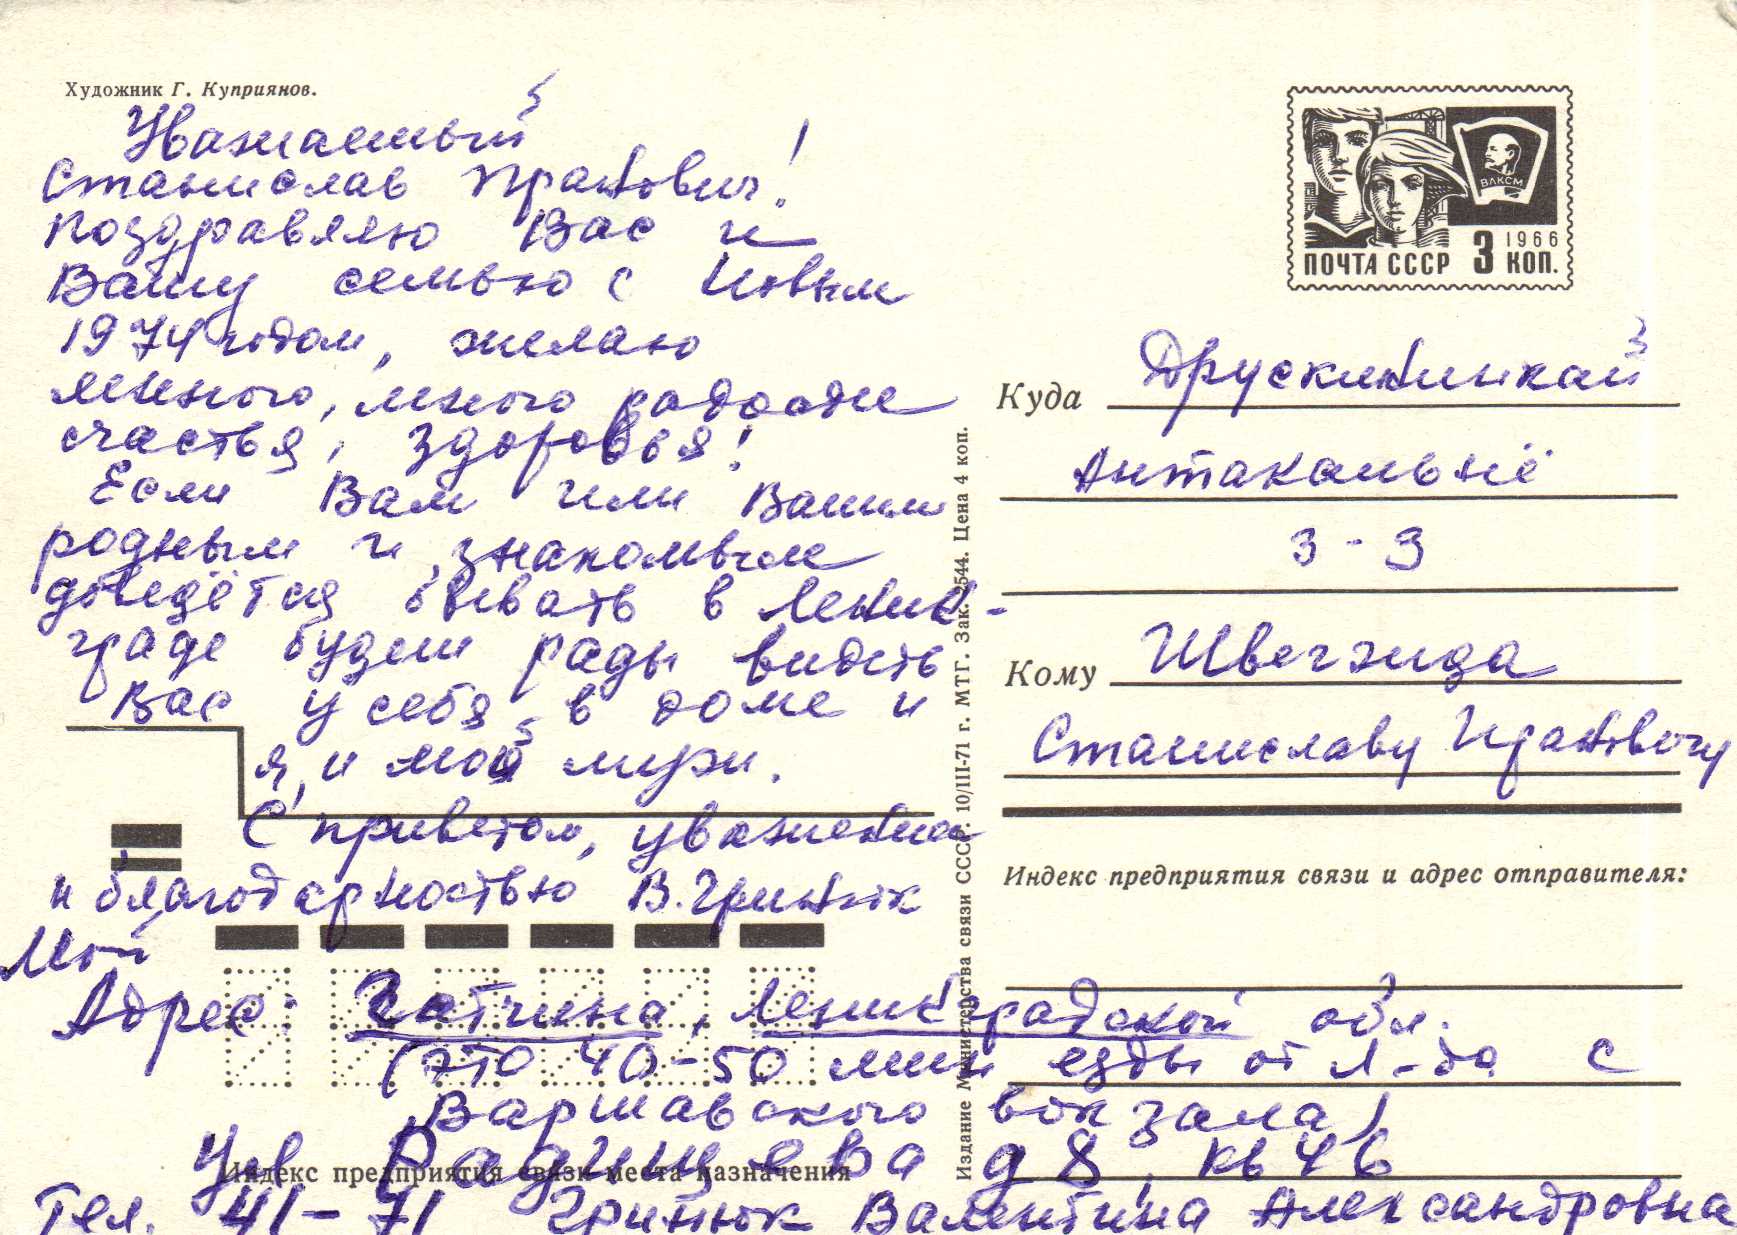 Художник Г. Куприянов.
Уважаемый
Станислав Пранович!
Поздравляю Вас и
Вашу семью с Новым
1974 годом, желаю
много, много радости
счастья, здоровья!
Если Вам или Вашим
родным и знакомым
доведётся бывать в Ленин-
граде будем рады видеть
Вас у себя в доме и
я, и мой муж.
С приветом, уважением
и благодарностью В. Гринюк
Мой
Адрес: Гатчина, Ленинградской обл.
(это 40-50 мин езды от Л-да с
Варшавского вокзала)
Радищева д 8, кв 46
Тел. 41-71 Гринюк Валентина Александровна
ПОЧТА СССР 3 КОП.
1966
ВЛКСМ
Куда Друскининкай
Антакальнё
3-3
Кому Швегжда
Станиславу Прановичу
Индекс предприятия связи и адрес отправителя:
Издание Министерства связи СССР. 10/III-71 г. МТГ. Зак. 2544. Цена 4 коп.
Индекс предприятия связи места назначения